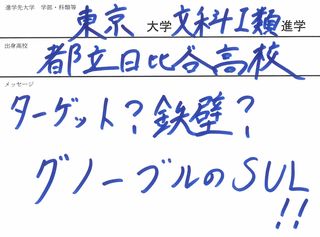 進学先大学 学部・科類等
東京 大学 文科I類 進学
出身高校
都立日比谷高校
メッセージ
ターゲット?鉄壁?
グノーブルのSUL
!!